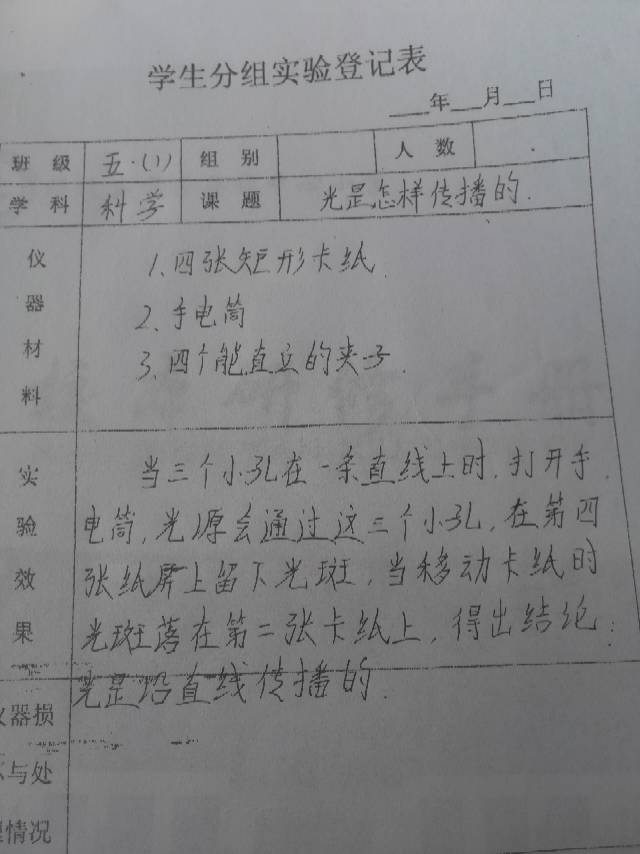 学生分组实验登记表
___年___月___日
班 级 五.(1) 组 别 人 数
学 科 科学 课 题 光是怎样传播的.
仪器材料
1、四张矩形卡纸
2、手电筒
3、四个能直立的夹子.
实验效果
当三个小孔在一条直线上时.打开手
电筒,光源会通过这三个小孔,在第四
张纸屏上留下光斑,当移动卡纸时
光斑落在第二张卡纸上,得出结论:
光是沿直线传播的.
仪器损
与处
情况